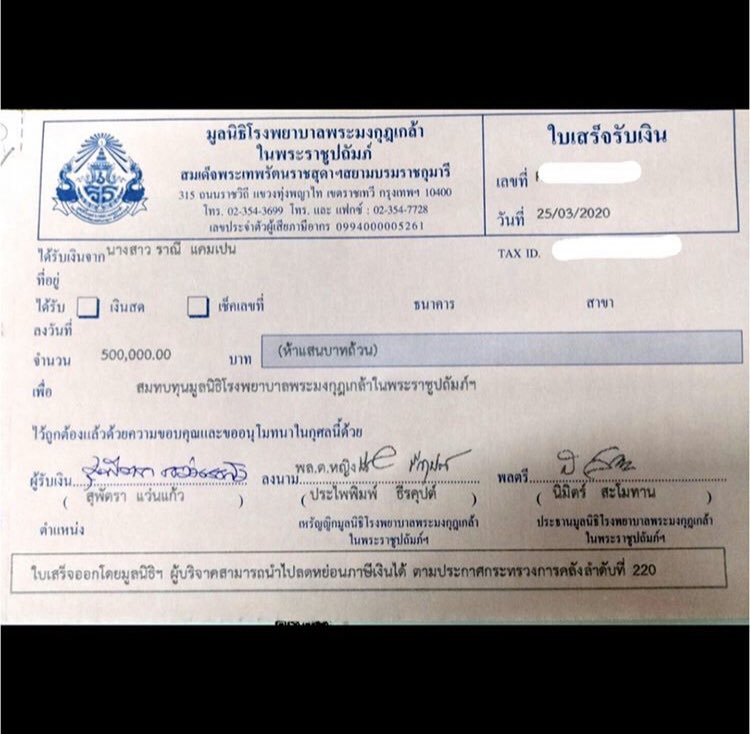 มูลนิธิโรงพยาบาลพระมงกุฎเกล้า
ในพระราชูปถัมภ์
สมเด็จพระเทพรัตนราชสุดาฯสยามบรมราชกุมารี
315 ถนนราชวิถี แขวงทุ่งพญาไท เขตราชเทวี กรุงเทพฯ 10400
โทร. 02-354-3699 โทร. และ แฟกซ์ : 02-354-7728
เลขประจำตัวผู้เสียภาษีอากร 0994000005261
ใบเสร็จรับเงิน
เลขที่
วันที่ 25/03/2020
ได้รับเงินจาก นางสาว ราณี แคมเปน
TAX ID.
ที่อยู่
ได้รับ เงินสด เช็คเลขที่ ธนาคาร สาขา
ลงวันที่
จำนวน 500,000.00 บาท (ห้าแสนบาทถ้วน)
เพื่อ สมทบทุนมูลนิธิโรงพยาบาลพระมงกุฎเกล้าในพระราชูปถัมภ์ฯ
ไว้ถูกต้องแล้วด้วยความขอบคุณและขออนุโมทนาในกุศลนี้ด้วย
ผู้รับเงิน ลงนาม พล.ต.หญิง พลตรี
( สุพัตรา แว่นแก้ว ) ( ประไพพิมพ์ ธีรคุปต์ ) ( นิมิตร์ สะโมทาน )
ตำแหน่ง เหรัญญิกมูลนิธิโรงพยาบาลพระมงกุฎเกล้า ประธานมูลนิธิโรงพยาบาลพระมงกุฎเกล้า
ในพระราชูปถัมภ์ฯ ในพระราชูปถัมภ์ฯ
ใบเสร็จออกโดยมูลนิธิฯ ผู้บริจาคสามารถนำไปลดหย่อนภาษีเงินได้ ตามประกาศกระทรวงการคลังลำดับที่ 220